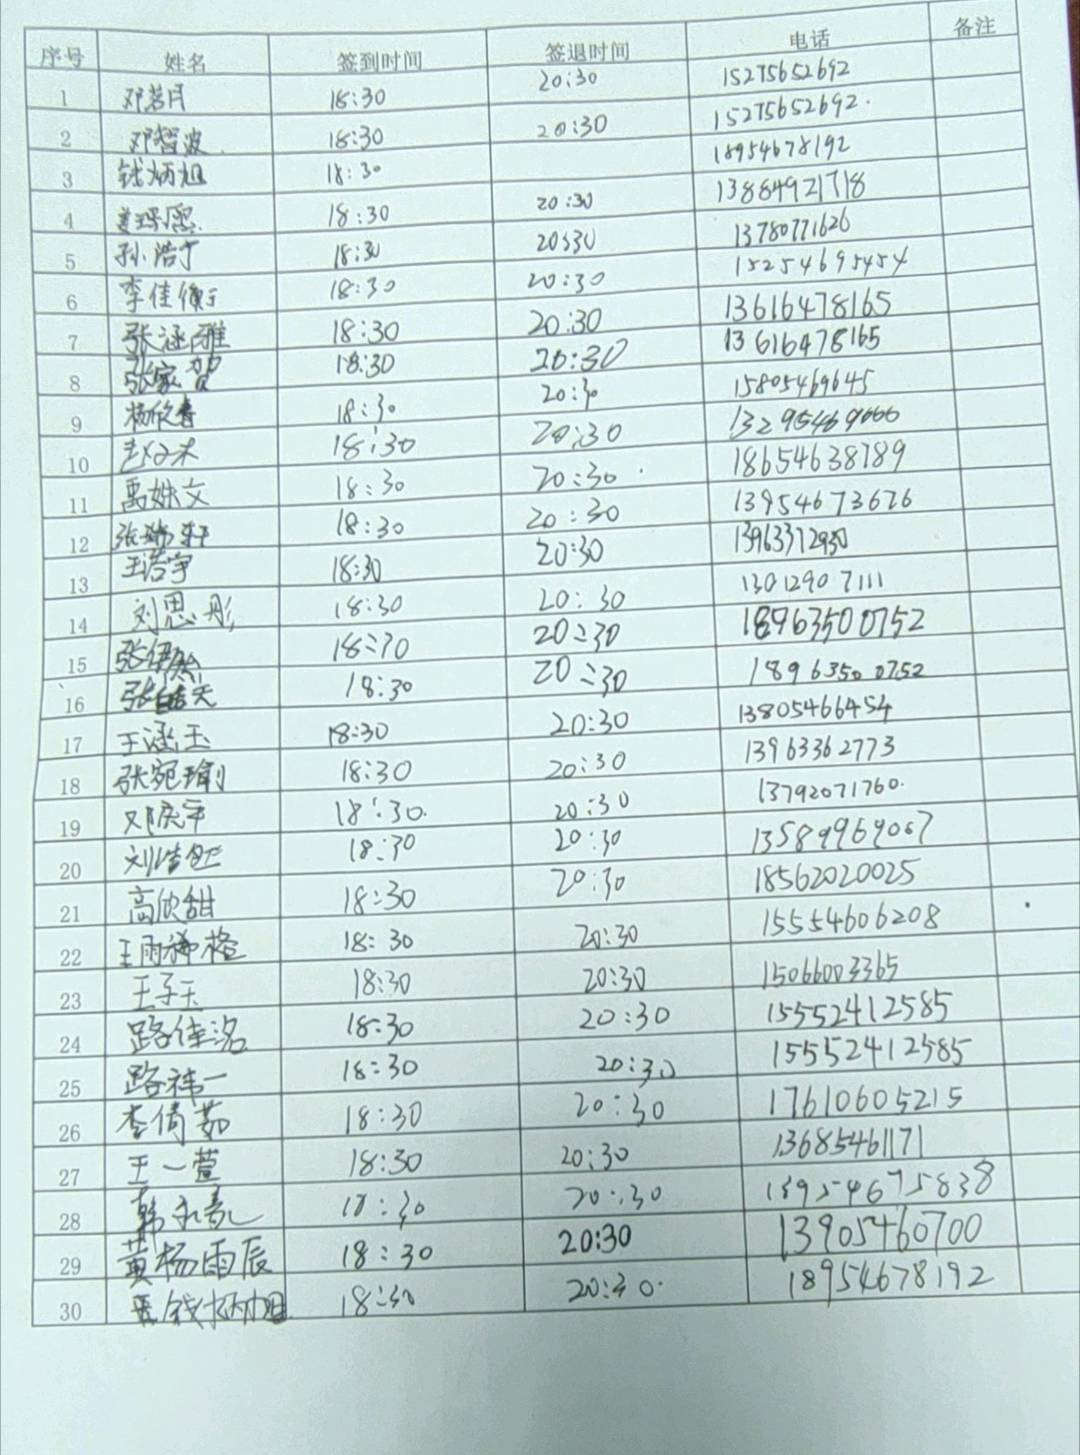 序号 姓名 签到时间 签退时间 电话 备注
1 邓茗月 18:30 20:30 15275652692
2 邓智波 18:30 20:30 15275652692.
3 钱炳旭 18:30 18954678192
4 18:30 20:30 13884921718
5 孙浩宁 18:30 20:30 13780771626
6 李佳衡 18:30 20:30 15254695454
7 张涵雅 18:30 20:30 13616478165
8 张家贺 18:30 20:30 13616478165
9 杨欣鲁 18:30 20:30 15805469645
10 赵又禾 18:30 20:30 13295469666
11 禹姝文 18:30 20:30 18654638789
12 张瑞轩 18:30 20:30 13954673676
13 王浩宇 18:30 20:30 13963372950
14 刘思彤 18:30 20:30 13012907111
15 18:30 20:30 18963500752
16 张皓天 18:30 20:30 18963500752
17 王涵玉 18:30 20:30 13805466454
18 张宛瑜 18:30 20:30 13963362773
19 邓庆宇 18:30. 20:30 13792071760.
20 刘浩 18:30 20:30 13589969067
21 高欣甜 18:30 20:30 18562020025
22 王雨格 18:30 20:30 15554606208
23 王子玉 18:30 20:30 15066003365
24 路佳洺 18:30 20:30 15552412585
25 路祎一 18:30 20:30 15552412585
26 李倩茹 18:30 20:30 17610605215
27 王一萱 18:30 20:30 13685461171
28 韩永毫 18:30 20:30 13954675838
29 黄杨雨辰 18:30 20:30 13905460700
30 钱炳旭 18:30 20:30. 18954678192